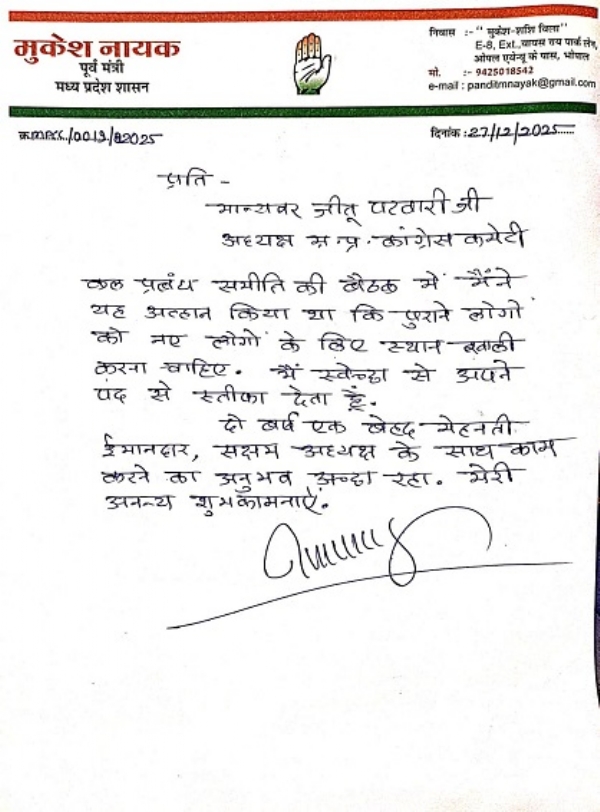 मुकेश नायक
पूर्व मंत्री
मध्य प्रदेश शासन
निवास :- " मुकेश-शशि विला"
E-8, Ext.,वायस राय पार्क लेन,
ओपल एवेन्यू के पास, भोपाल
मो. :- 9425018542
e-mail : panditmnayak@gmail.com
दिनांक :27/12/2025
प्रति -
मान्यवर जीतू पटवारी जी
अध्यक्ष म.प्र. कांग्रेस कमेटी
कल प्रबंध समीति की बैठक में मैंने
यह अव्हान किया था कि पुराने लोगों
को नए लोगों के लिए स्थान खाली
करना चाहिए. मैं स्वेच्छा से अपने
पद से स्तीफा देता हूँ.
दो वर्ष एक बेहद मेहनती
ईमानदार, सक्षम अध्यक्ष के साथ काम
करने का अनुभव अच्छा रहा. मेरी
अनन्य शुभकामनाऐं.